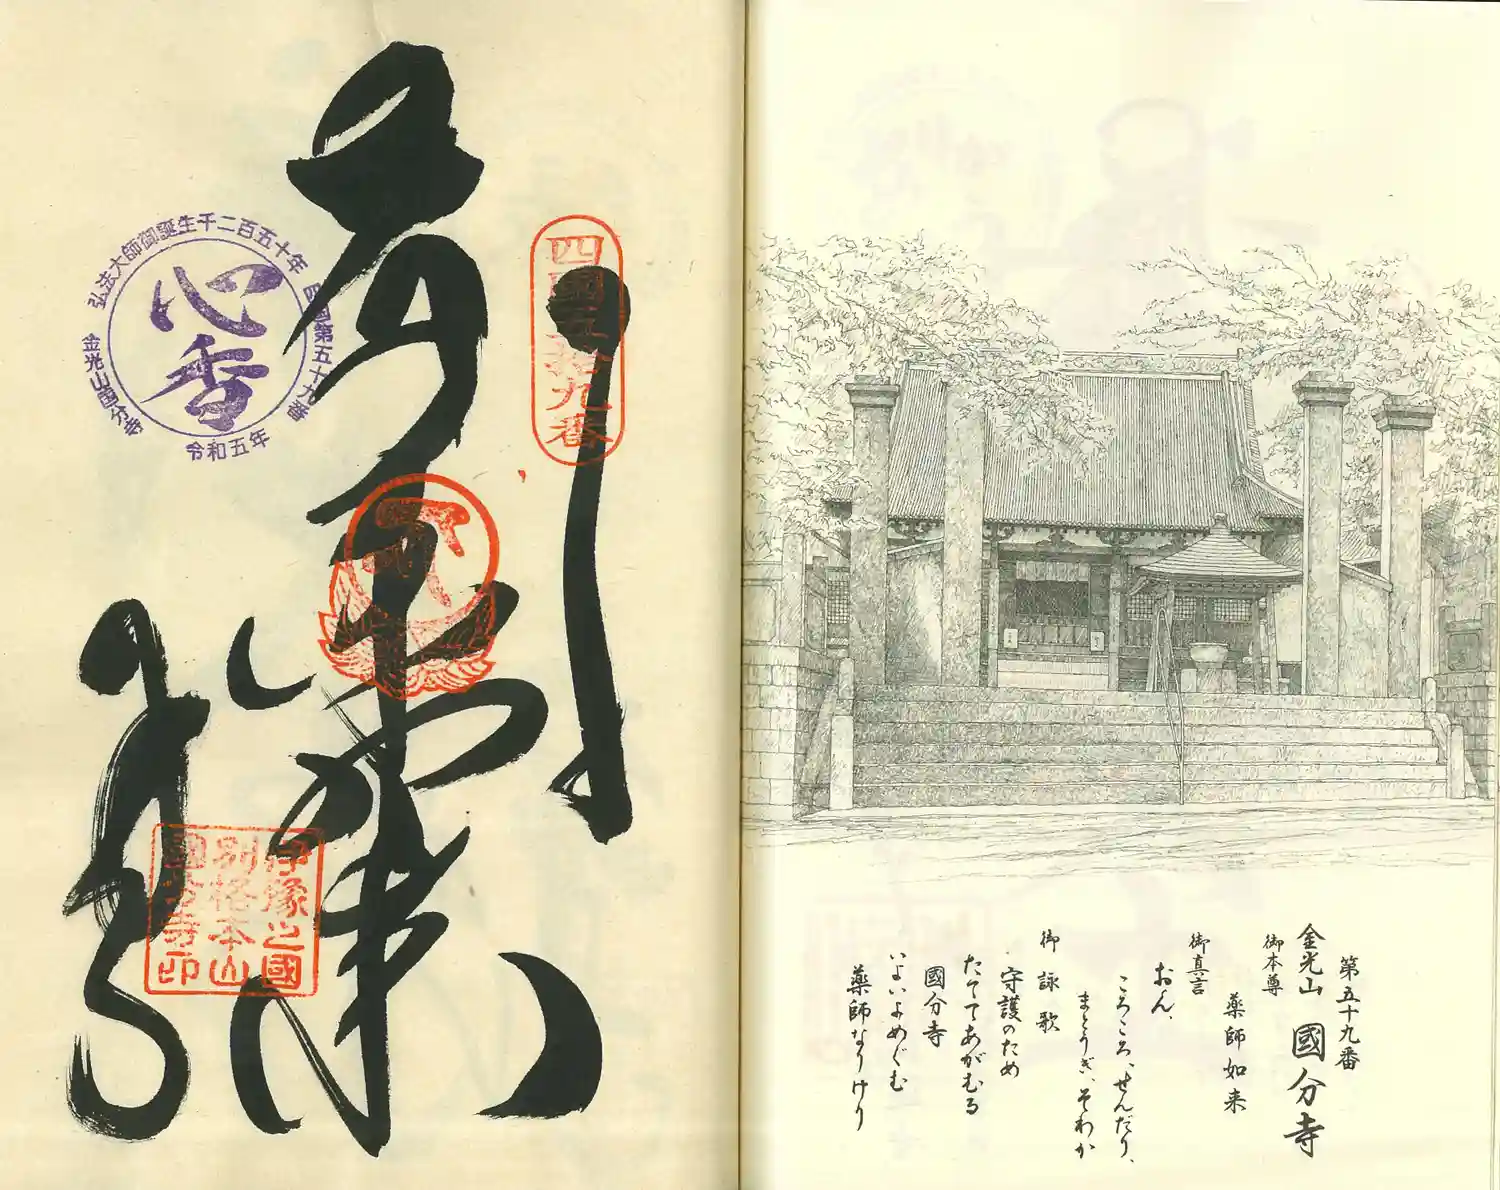 第五十九番
金光山 國分寺
御本尊
薬師如来
御真言
おん、
ころころ、せんだり、
まとうぎ、そわか
御詠歌
守護のため
たててあがむる
國分寺
いよいよめぐむ
薬師なりけり
四國五拾九番
弘法大師御誕生千二百五十年
四国第五十九番
金光山国分寺
令和五年
心香
伊豫之國
別格本山
國分寺印